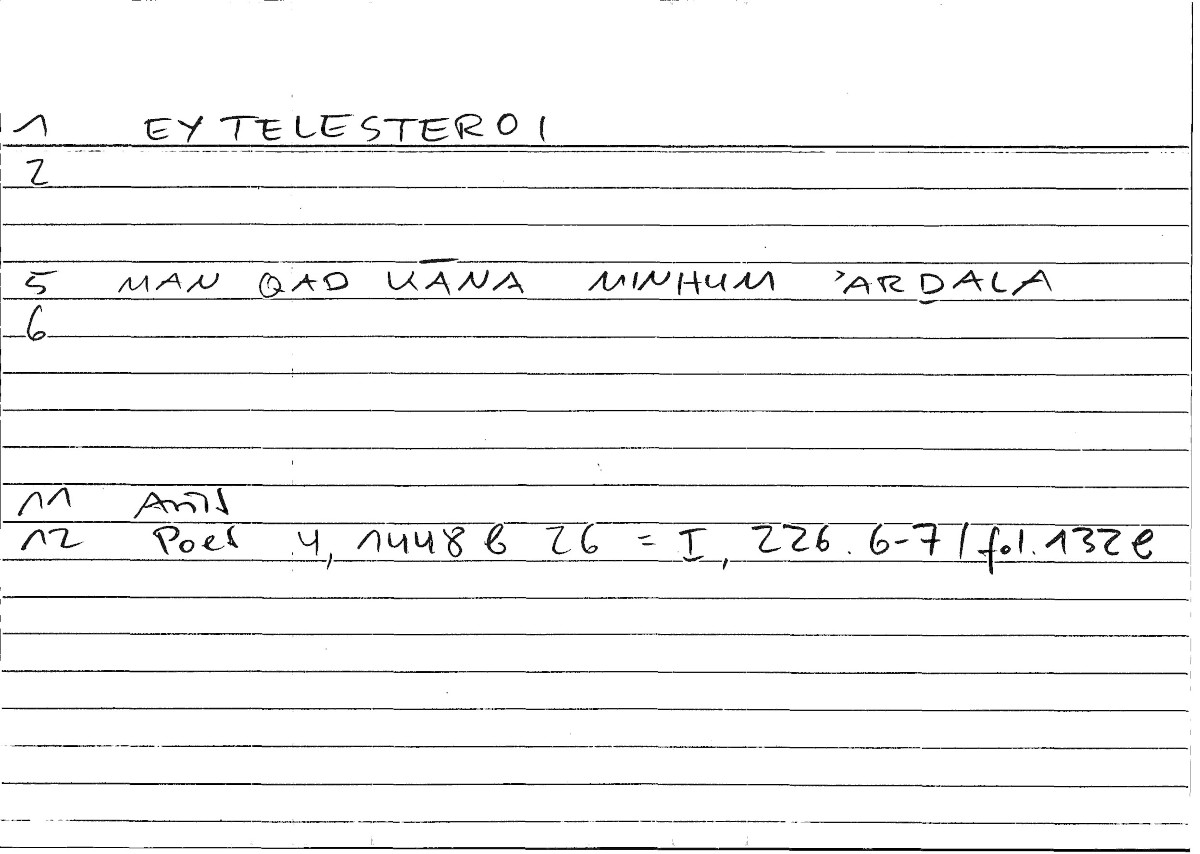 1 EYTELESTEROI
2
5 MAN QAD KĀNA MINHUM ʾARḎALA
6
11 Arist
12 Poet 4, 1448 b 26 = I, 226. 6-7 / fol. 132 b